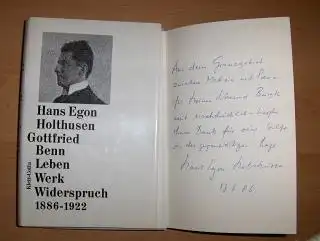 Hans Egon
Holthusen
Gottfried
Benn
Leben
Werk
Widerspruch
1886-1922
Klett-Cotta
Aus dem Grenzgebiet
zwischen Medizin und
für
mit
Dank für seine Hilfe
in der gegenwärtigen Lage
Hans Egon Holthusen